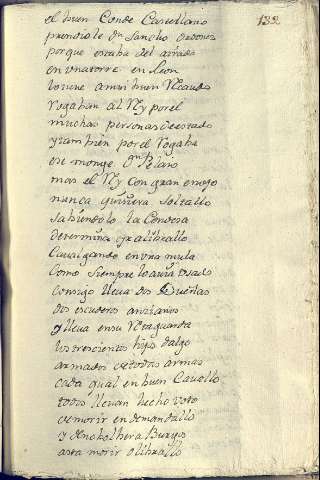 132
el buen Conde Castellano
prendiole Dn Sancho Ordoñez
porque estaba del airado
en una torre en Leon
lo tiene a muy buen Recaudo
Rogaban al Rey por el
muchas personas de estado
y tambien por el Rogaba
ese monge Dn Pelaio
mas el Rey con gran enojo
nunca quisiera soltallo
Sabiendolo la Condesa
determina yr a librallo
Cavalgando en una mula
Como siempre lo avia usado
consigo lleva dos Dueñas
dos escuderos ancianos
lleva en su Retaguarda
los trescientos hijos dalgo
armados de todas armas
cada qual en buen Cavallo
todos llevan hecho voto
de morir en demandallo
y de no bolber a Burgos
asta morir o librallo